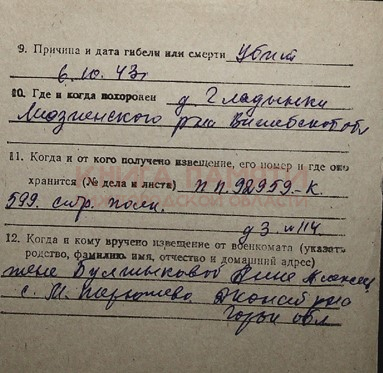 9. Причина и дата гибели или смерти убит
6.10.43г
10. Где и когда похоронен д. Гладышки
Лиозненского р-на Витебской обл
11. Когда и от кого получено извещение, его номер и где оно
КНИГА ПАМЯТИ
хранится (№ дела и листа) п.п. 92959-К.
ОБЛАСТИ
599. стр. полк.
д 3. л 114
12. Когда и кому вручено извещение от военкомата (указать
родство, фамилию, имя, отчество и домашний адрес)
жене
с. М.
обл